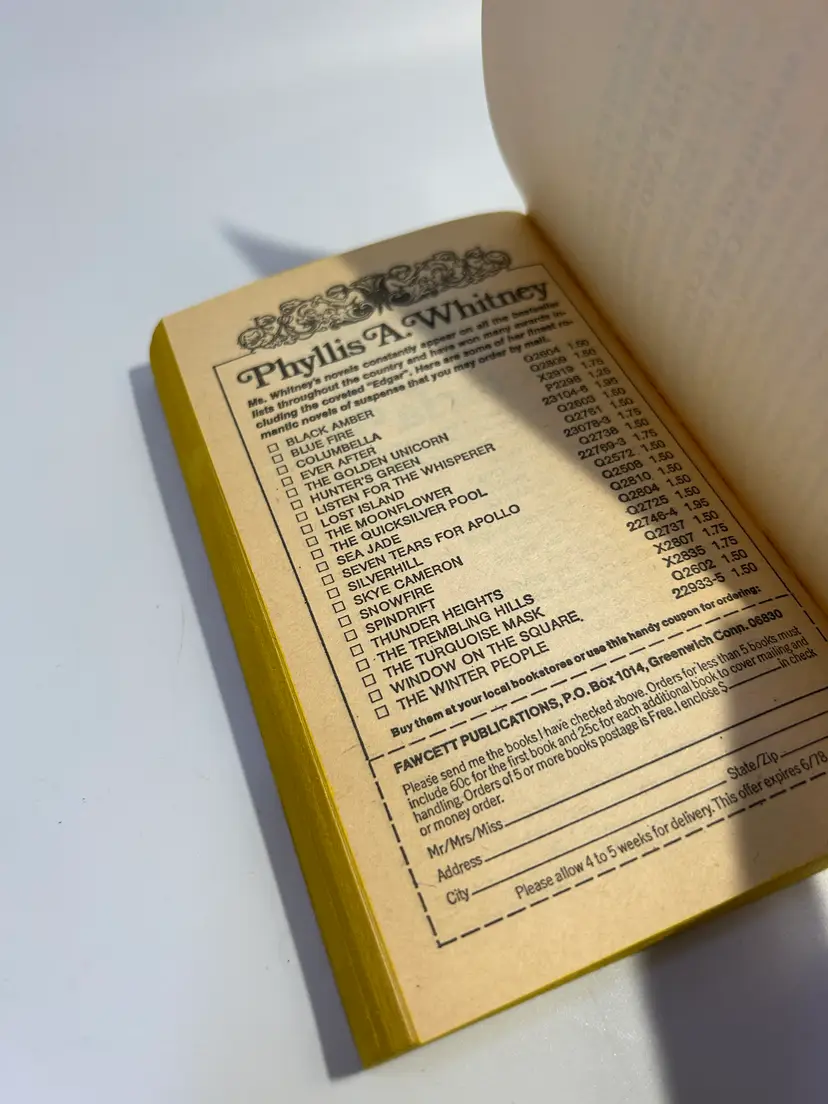 Phyllis A. Whitney
Ms. Whitney's novels constantly appear on all the bestseller
lists throughout the country and have won many awards in-
cluding the coveted "Edgar". Here are some of her finest ro-
mantic novels of suspense that you may order by mail.
☐ BLACK AMBER Q2604 1.50
☐ BLUE FIRE Q2809 1.50
☐ COLUMBELLA X2919 1.75
☐ EVER AFTER P2298 1.25
☐ THE GOLDEN UNICORN 23104-6 1.95
☐ HUNTER'S GREEN Q2603 1.50
☐ LISTEN FOR THE WHISPERER Q2761 1.50
☐ LOST ISLAND 23078-3 1.75
☐ THE MOONFLOWER Q2738 1.50
☐ THE QUICKSILVER POOL 22769-3 1.75
☐ SEA JADE Q2572 1.50
☐ SEVEN TEARS FOR APOLLO Q2508 1.50
☐ SILVERHILL Q2810 1.50
☐ SKYE CAMERON Q2804 1.50
☐ SNOWFIRE Q2725 1.50
☐ SPINDRIFT 22746-4 1.95
☐ THUNDER HEIGHTS Q2737 1.50
☐ THE TREMBLING HILLS X2807 1.75
☐ THE TURQUOISE MASK X2835 1.75
☐ WINDOW ON THE SQUARE Q2602 1.50
☐ THE WINTER PEOPLE 22933-5 1.50
Buy them at your local bookstores or use this handy coupon for ordering:
FAWCETT PUBLICATIONS, P.O. Box 1014, Greenwich Conn. 06830
Please send me the books I have checked above. Orders for less than 5 books must
include 60c for the first book and 25c for each additional book to cover mailing and
handling. Orders of 5 or more books postage is Free. I enclose $ in check
or money order.
Mr/Mrs/Miss
Address
City State/Zip
Please allow 4 to 5 weeks for delivery. This offer expires 6/78